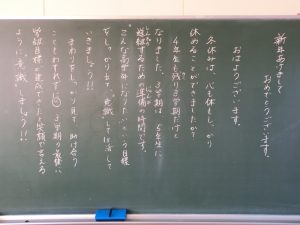 新年あけまして
おめでとうございます。
おはようございます。
冬休みは、心も体もしっかり
休めることができましたか？
4年生も残り3学期だけと
なりました。3学期は、5年生に
進級するための準備の時間です。
"こんな高学年になりたい"という目標
をしっかり立て、意識して生活して
いきましょう!!
まわりをしっかり見て、助け合う
こともわすれずに 3学期の最後に
学級目標を達成できたと笑顔で言える
ように意識しましょう!!